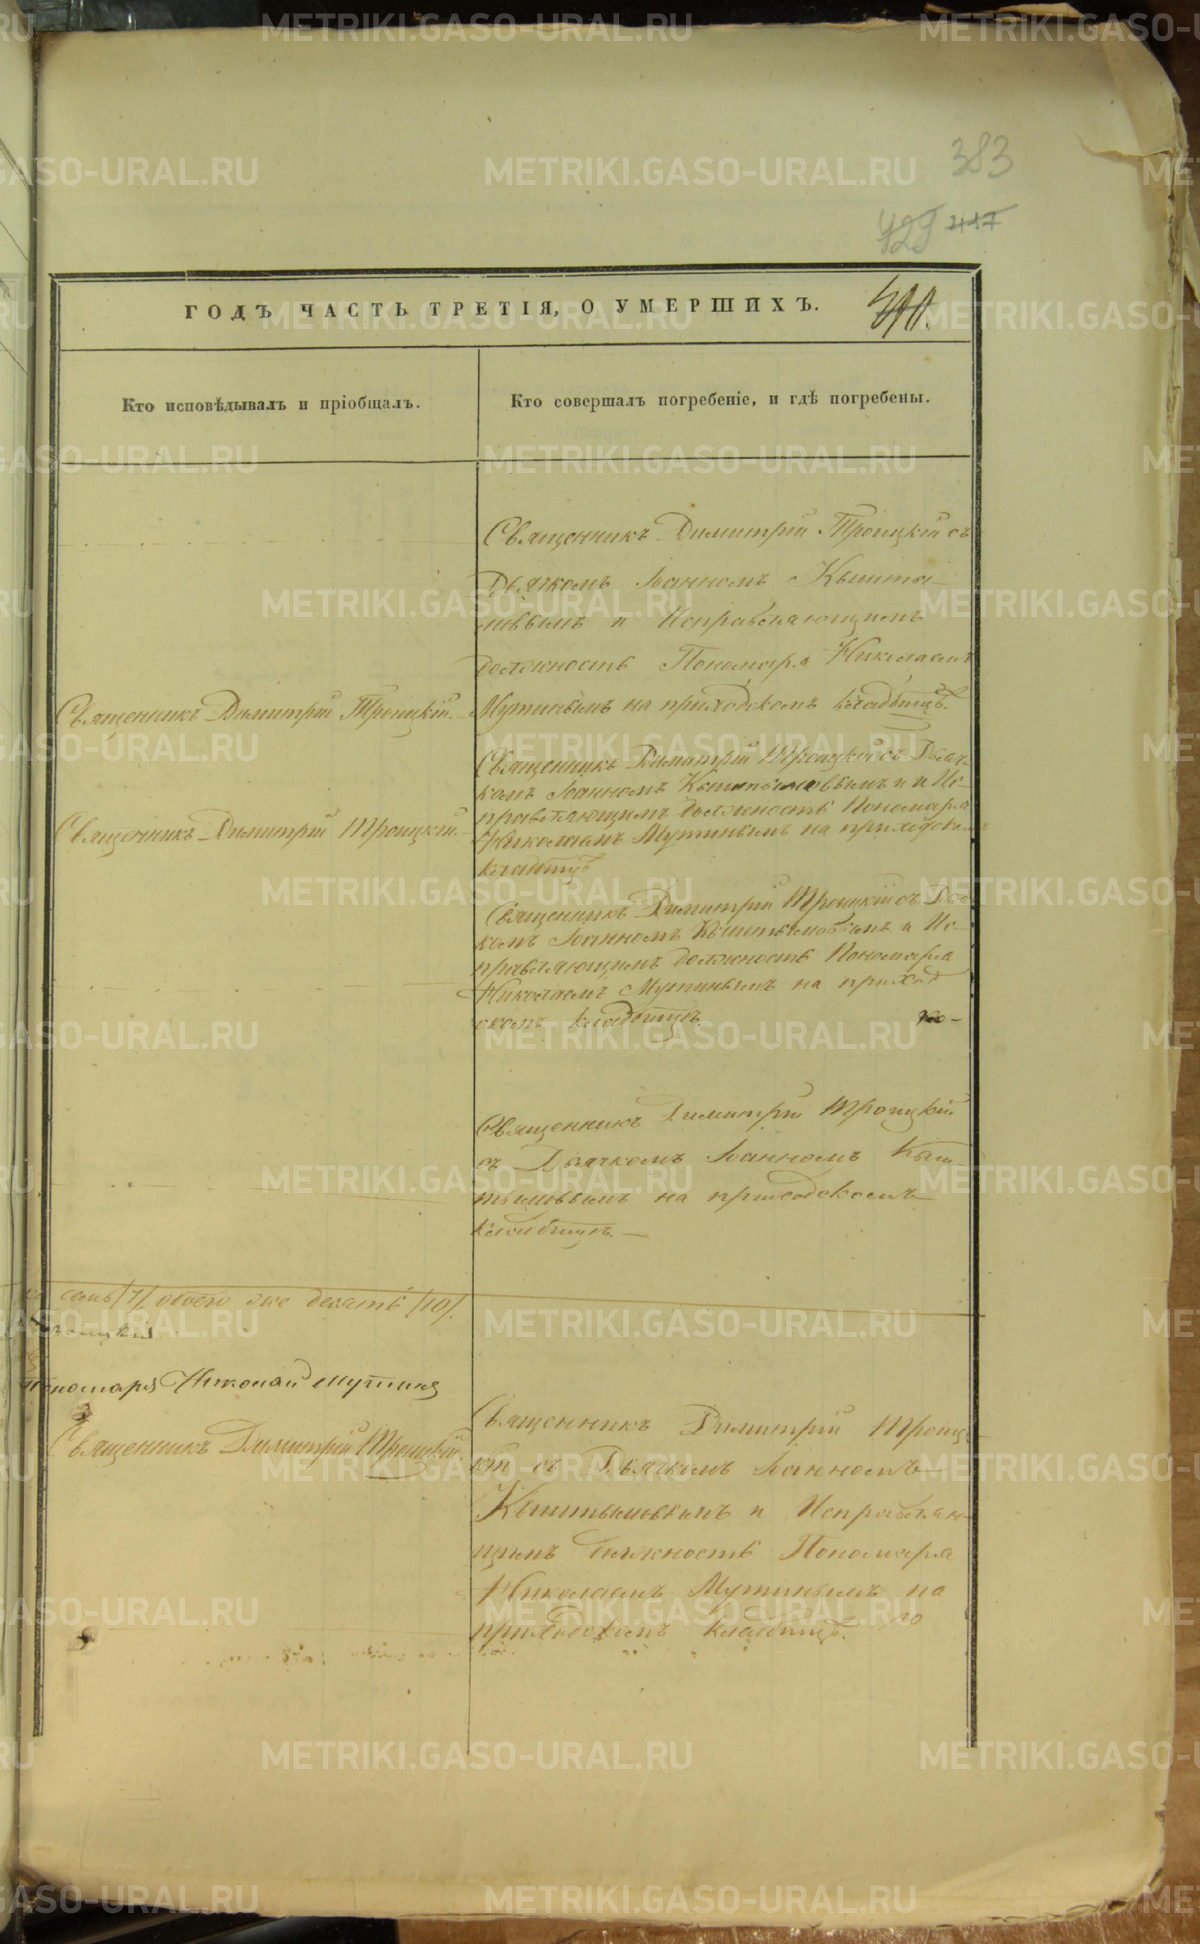 383
729 417
ГОДЪ ЧАСТЬ ТРЕТІЯ, О УМЕРШИХЪ.
Кто исповѣдывалъ и пріобщалъ.
Кто совершалъ погребеніе, и гдѣ погребены.
Священникъ Димитрій Троицкій съ
Дьячкомъ Іоанномъ Кышты-
мовымъ и Исправляющимъ
должность Пономаря Николаемъ
Священникъ Димитрій Троицкій.
Мутинымъ на приходскомъ кладбищѣ.
Священникъ Димитрій Троицкій съ Дьяч-
комъ Іоанномъ Кыштымовымъ и Ис-
правляющимъ должность Пономаря
Священникъ Димитрій Троицкій.
Николаемъ Мутинымъ на приходскомъ
кладбищѣ
Священникъ Димитрій Троицкій съ Дьяч-
комъ Іоанномъ Кыштымовымъ и Ис-
правляющимъ должность Пономаря
Николаемъ Мутинымъ на приход
скомъ кладбищѣ.
Священникъ Димитрій Троицкій
съ Дьячкомъ Іоанномъ Кыш
тымовымъ на приходскомъ
кладбищѣ.
семь /7/ обоего же десять /10/.
Троицкій
Пономаря Николай Мутинъ
Священникъ Димитрій Троицкій.
Священникъ Димитрій Троиц-
кій съ Дьячкомъ Іоанномъ
Кыштымовымъ и Исправляю-
щимъ должность Пономаря
Николаемъ Мутинымъ на
приходскомъ кладбищѣ.
METRIKI.GASO-URAL.RU